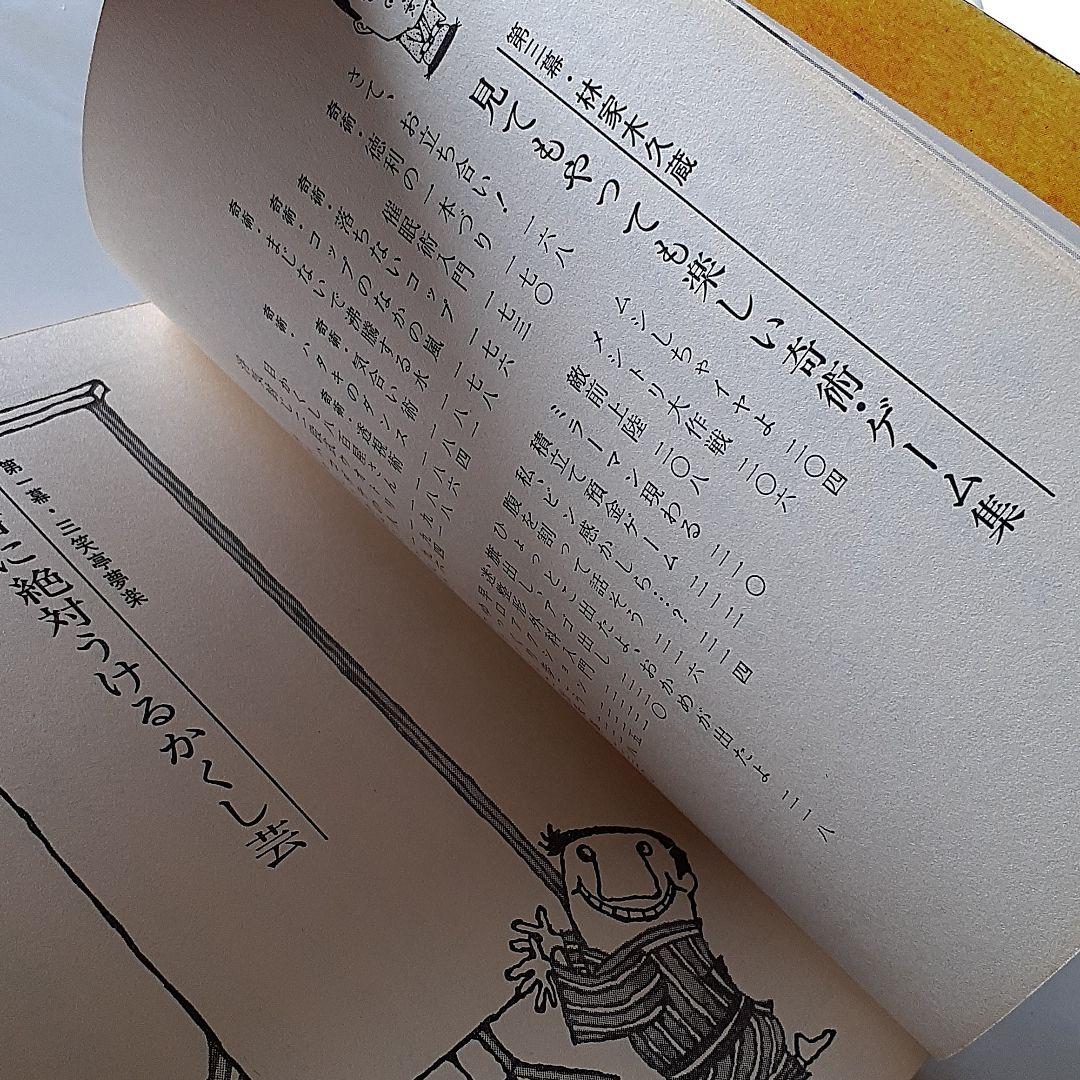 第三幕・林家木久蔵
見てもやっても楽しい奇術・ゲーム集
さて、お立ち合い! 一六八
奇術・徳利の一本づり 一七〇
催眠術入門 一七三
奇術・落ちないコップ 一七六
奇術・コップのなかの嵐 一七八
奇術・まじないで沸騰する水
奇術・気合い術
奇術・ハタキのダンス
奇術・透視術
目かくし八百屋さん
ムシしちゃイヤよ 二〇四
メシトリ大作戦 二〇六
敵前上陸 二〇八
ミラーマン現わる 二一〇
積立て預金ゲーム 二一二
私、ビン感かしら…? 二一四
腹を割って話そう 二一六
ひょっとこ出たよ、おかめが出たよ 二一八
旅出し、アゴ出し 二二〇
迷整形外科入門
第一幕・三笑亭夢楽
に絶対うけるかくし芸